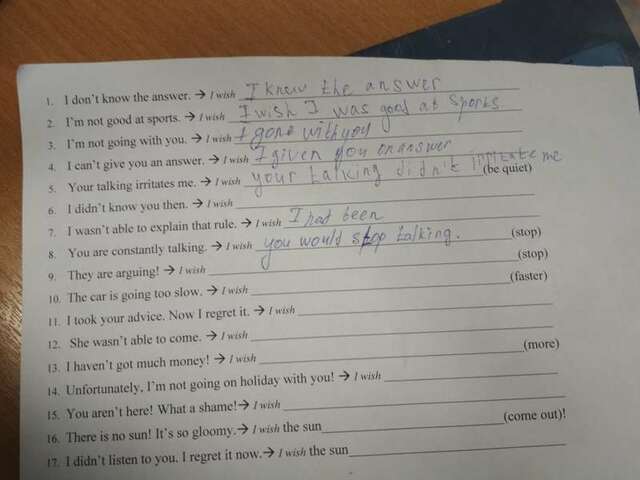 1. I don't know the answer. → I wish I knew the answer
2. I'm not good at sports. → I wish I wish I was good at sports
3. I'm not going with you. → I wish I gone with you
4. I can't give you an answer. → I wish I given you an answer
5. Your talking irritates me. → I wish your talking didn't irritate me (be quiet)
6. I didn't know you then. → I wish
7. I wasn't able to explain that rule. → I wish I had been
8. You are constantly talking. → I wish you would stop talking. (stop)
9. They are arguing! → I wish (stop)
10. The car is going too slow. → I wish (faster)
11. I took your advice. Now I regret it. → I wish
12. She wasn't able to come. → I wish
13. I haven't got much money! → I wish (more)
14. Unfortunately, I'm not going on holiday with you! → I wish
15. You aren't here! What a shame!→ I wish
16. There is no sun! It's so gloomy.→ I wish the sun (come out)!
17. I didn't listen to you. I regret it now.→ I wish the sun